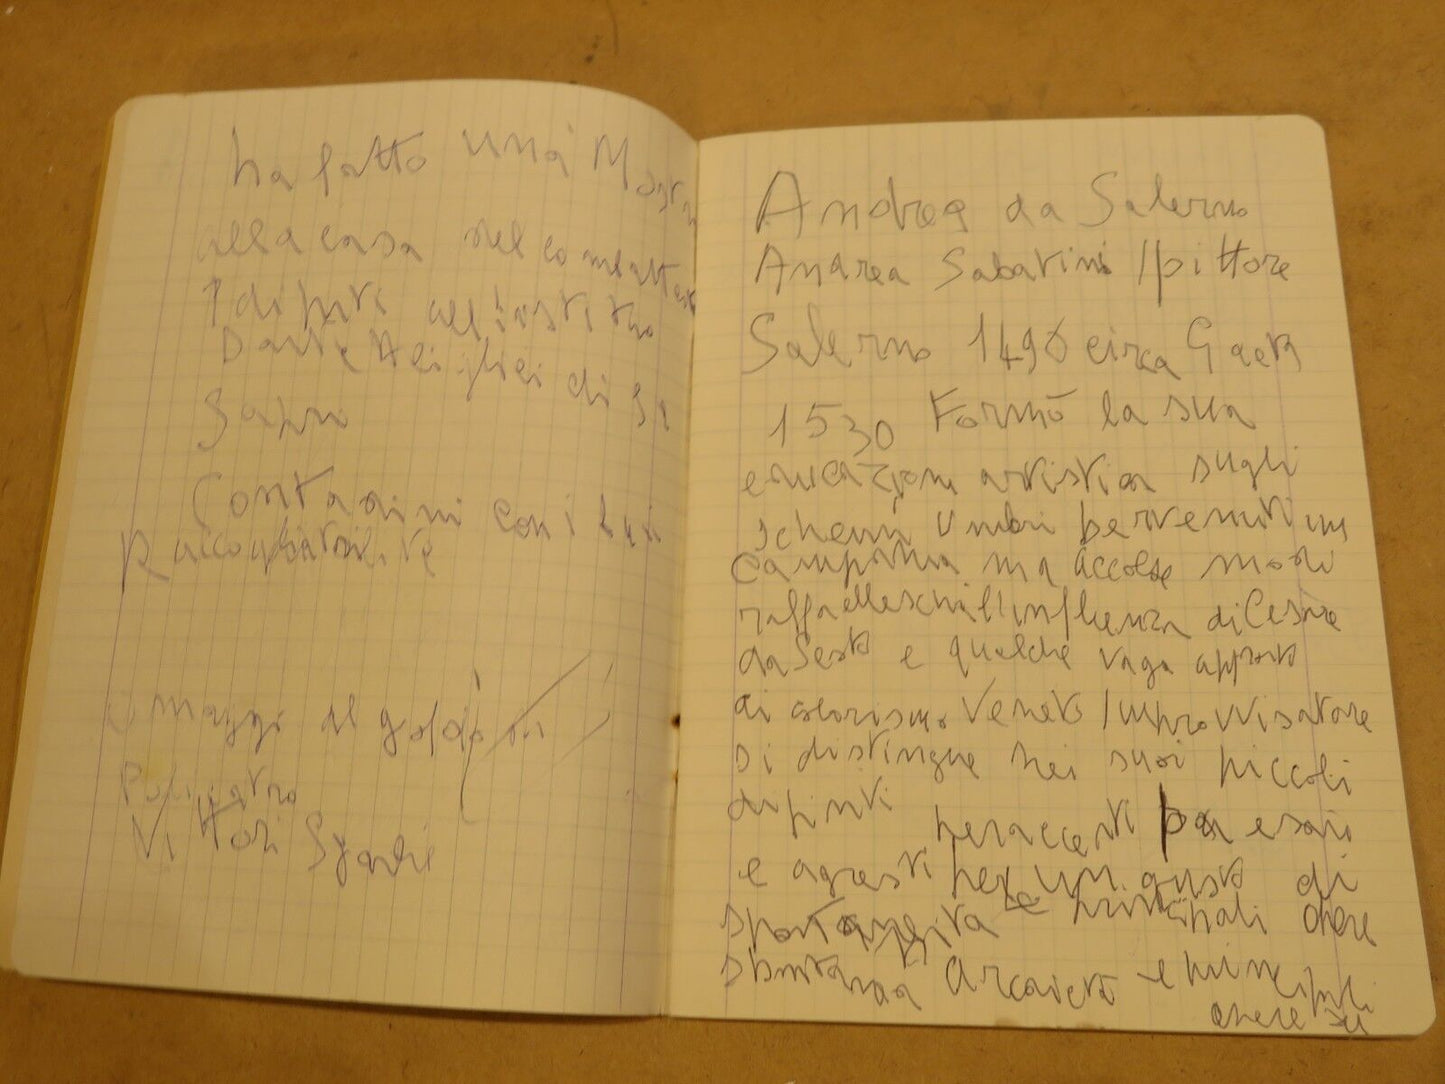 ha fatto una Mostra
alla casa del combattente
dipinti all'istituto
Dante Alighieri di
Sapri
Contadini con i
Omaggi al
Vittori Sgarbi
Andrea da Salerno
Andrea Sabatini pittore
Salerno 1490 circa Gaeta
1530 Formò la sua
educazione artistica sugli
schemi Umbri pervenuti in
Campania ma accolse modi
raffaelleschi l'influenza di Cesare
da Sesto e qualche vaga apporto
di colorismo Veneto Improvvisatore
si distingue nei suoi piccoli
dipinti
e agresti per un gusto di
principali opere
arcaicità e principali
opere